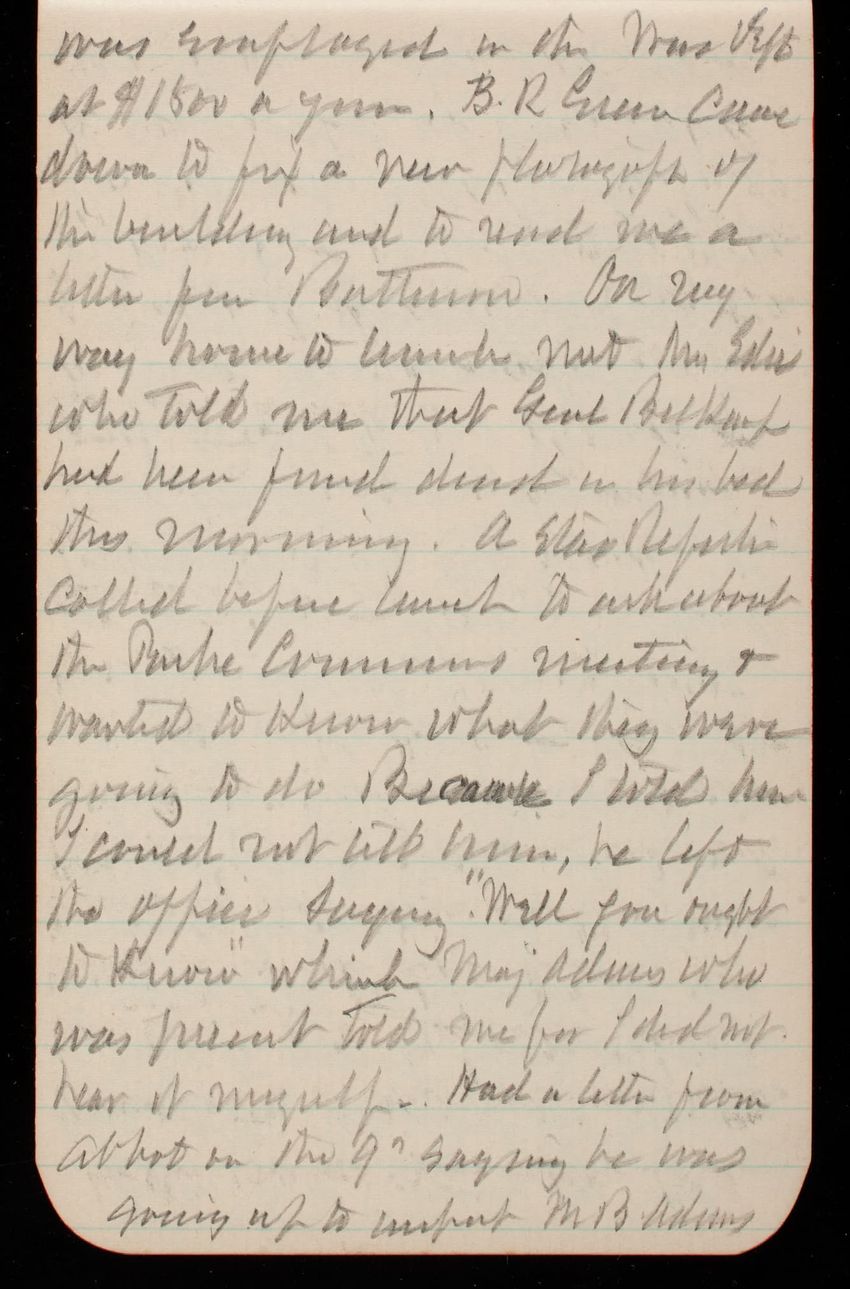 was employed in the War Dept
at $1800 a year. B. R Green Came
down to fix a new photogph of
the building and to read me a
letter from Batterson. On my
way home to lunch met Mrs
who Told me that Genl Belknap
had been found dead in his bed
this morning. A Star Reporter
Called before lunch to ask about
the Parke Commns meeting &
wanted to know what they were
going to do Because I told him
I could not tell him, he left
the office saying "Well you ought
to Know" which Maj Adams who
was present Told me for I did not
hear it myself -. Had a letter from
Abbot on the 9th saying he was
going up to inspect M B Adams